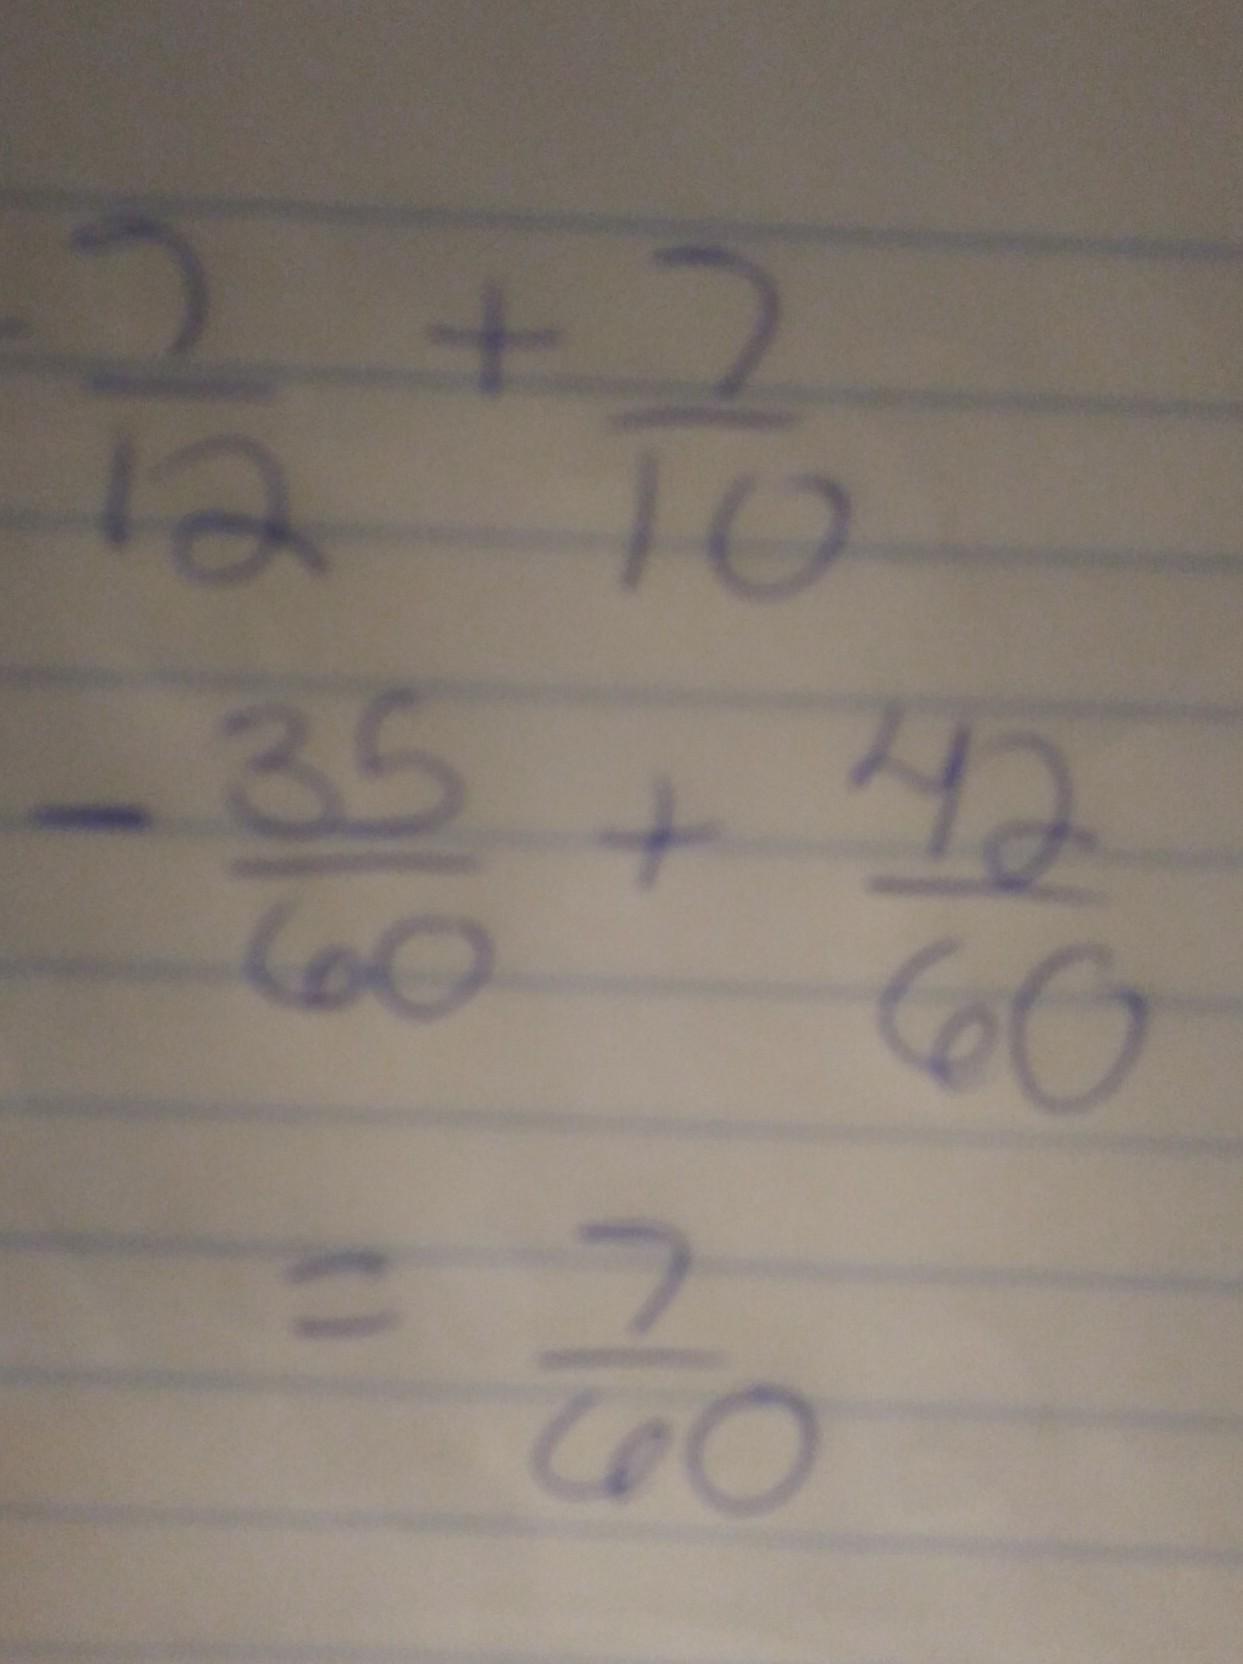 - 7/12 + 7/10
- 35/60 + 42/60
= 7/60